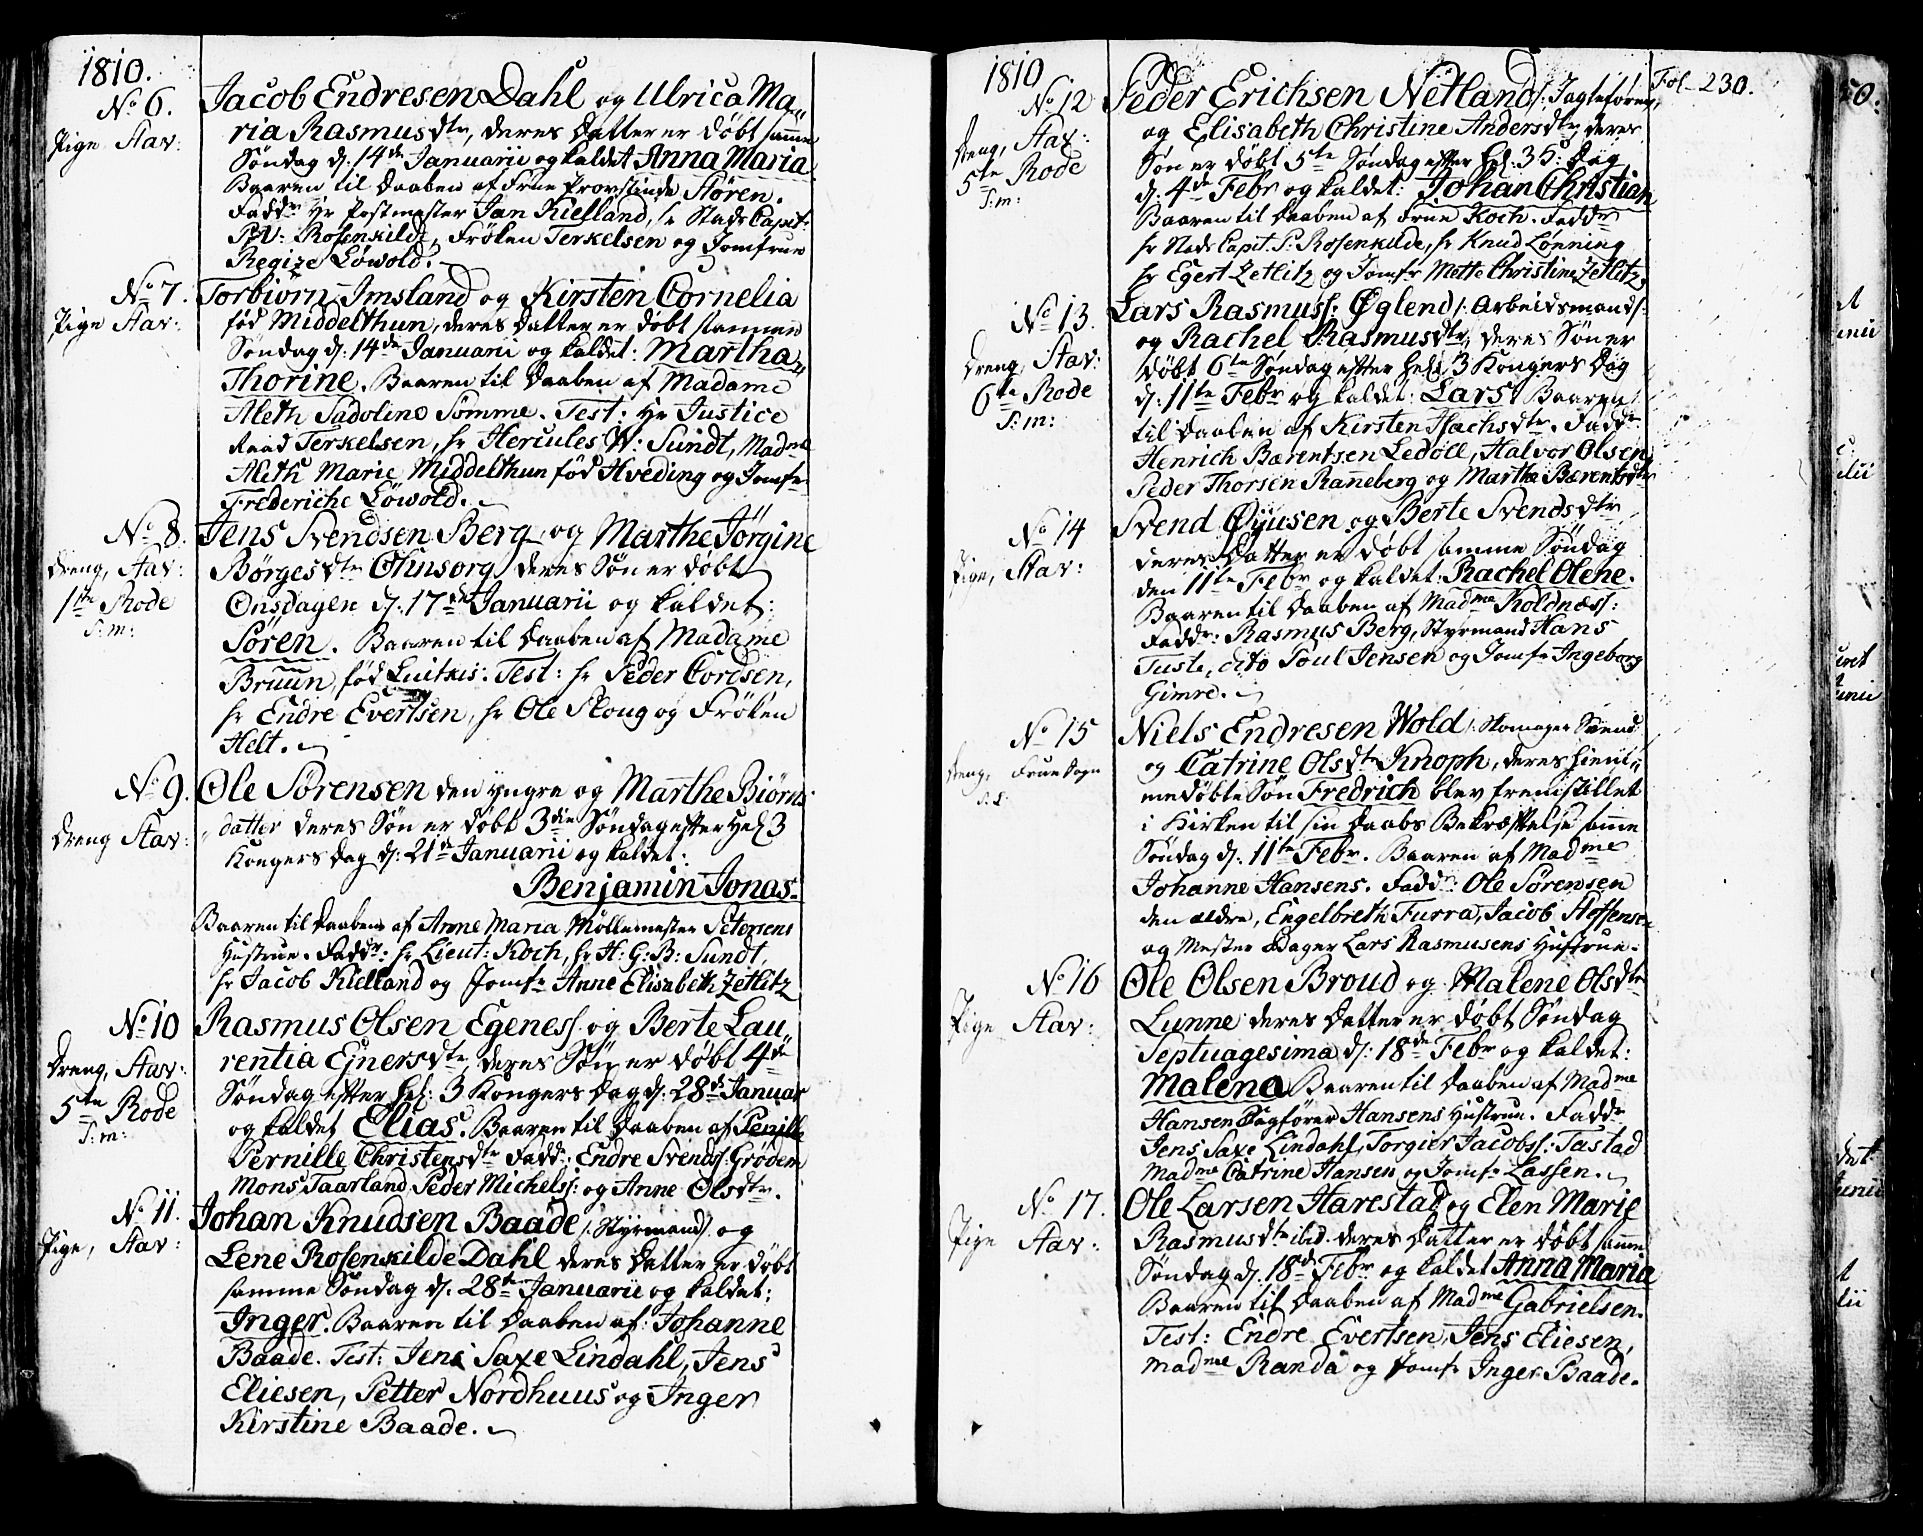 1810.
No 6.
Pige Stav:
Jacob Endresen Dahl og Ulrica Ma„
ria Rasmusdtr, deres Datter er døbt samme
Søndag d: 14de Januarii og kaldet Anna Maria
Baaren til Daaben af Frue Provstinde Støren.
Faddr Hr Postmester Jan Kielland, hr Stads Capit:
P.V: Rosenkilde, Frøken Terkelsen og Jomfrue
Regize Løwold.
No 7.
Pige Stav:
Torbiørn Imsland og Kirsten Cornelia
fød Middelthun, deres Datter er døbt samme
Søndag d: 14de Januarii og kaldet: Martha
Thorine. Baaren til Daaben af Madame
Aleth Sadoline Sømme. Test: Hr Justice
Raad Terkelsen, hr Hercules W: Sundt, Madme
Aleth Marie Middelthun fød Hveding og Jomfr
Frederiche Løwold.
No 8.
Dreng, Stav:
1ste Rode
S: m:
Jens Svendsen Berg og Marthe Jørgine
Børgesdtr Ohnsorg deres Søn er døbt
Onsdagen d: 17de Januarii og kaldet:
Søren. Baaren til Daaben af Madame
Bruun, fød Luitkis. Test: hr Peder Cordsen,
hr Endre Evertsen, hr Ole Skoug og Frøken
Helt.
No 9.
Dreng Stav:
Ole Sørensen den yngre og Marthe Biørns
datter deres Søn er døbt 3die Søndag efter Hel: 3
Kongers Dag d: 21de Januarii og kaldet:
Benjamin Jonas.
Baaren til Daaben af Anne Maria Møllemester Petersens
Hustrue. Faddr: hr Lieut: Koch, hr H: G: B: Sundt,
hr Jacob Kielland og Jomfr Anne Elisabeth Zetlitz
No 10
Dreng, Stav:
5te Rode
S: m:
Rasmus Olsen Egenes: og Berte Lau„
rentia Ejnersdtr, deres Søn er døbt 4de
Søndag efter Hel: 3 Kongers Dag d: 28de Januar
og kaldet Elias. Baaren til Daaben af Penille
Pernille Christensdtr Fadd: Endre Svends: Grødem
Mons Taarland, Peder Michels: og Anne Olsdtr.
No 11.
Pige, Stav:
Johan Knudsen Baade /: Styrmand :/ og
Lene Rosenkilde Dahl deres Datter er døbt
samme Søndag d: 28de Januarii og kaldet:
Inger. Baaren til Daaben af: Johanne
Baade. Test: Jens Saxe Lindahl, Jens
Eliesen, Petter Nordhuus og Inger
Kirstine Baade.
1810
Fol. 230.
No 12
Dreng, Stav:
5te Rode
S: m:
Peder Erichsen Netland /: Jagteføren,
og Elisabeth Christine Andersdtr, deres
Søn er døbt 5te Søndag efter Hel: 3 K: Dag
d: 4de Febr og kaldet: Johan Christian
Baaren til Daaben af Frue Koch. Faddr
hr Stads Capit. P: Rosenkilde, hr Knud Lønning
hr Egert Zetlitz og Jomfr Mette Christine Zetlitz,
No 13.
Dreng, Stav:
6te Rode
S: m:
Lars Rasmuss: Øglend /: Arbeidsmand :/
og Rachel Rasmusdtr, deres Søn er
døbt 6te Søndag efter Hel: 3 Kongers Dag
d: 11te Febr og kaldet: Lars. Baaren
til Daaben af Kirsten Isachsdtr. Faddr
Henrich Bærentsen Ledøll, Halvor Olsen
Peder Thorsen Ranneberg og Martha Bærentsdtr
No 14
Pige, Stav:
Svend Øyusen og Berte Svendsdtr
deres Datter er døbt samme Søndag
den 11te Febr og kaldet: Rachel Olene.
Baaren til Daaben af Madme Koldnæs:
Faddr: Rasmus Berg, Styrmand Hans
Tuste, dito Poul Jensen og Jomfr Ingeborg
Gimre.
No 15
Dreng, Frue Sogn
Niels Endresen Wold /: Skomager Svend
og Catrine Olsdtr Knoph, deres hjem„
medøbte Søn Fredrich blev fremstillet
i Kirken til sin Daabs Bekræftelse samme
Søndag d: 11te Febr. Baaren af Madme
Johanne Hansens. Faddr: Ole Sørensen
den ældre, Engelbreth Furra, Jacob Steffensen
og Mester Bager Lars Rasmusens Hustrue.
No 16
Pige Stav:
Ole Olsen Broud og Malene Olsdtr
Lunne deres Datter er døbt Søndag
Septuagesima d: 18de Febr og kaldet:
Malena Baaren til Daaben af Madme
Hansen Dagfører Hansens Hustrue. Faddr
Jens Saxe Lindahl, Torgier Jacobs: Tastad
Madme Catrine Hansen og Jomfr Lassen.
No 17.
Pige Stav:
Ole Larsen Harestad og Elen Marie
Rasmusdtr ibid. deres Datter er døbt samme
Søndag d. 18de Febr og kaldet Anna Maria
Baaren til Daaben af Madme Gabrielsen.
Test: Endre Evertsen, Jens Eliesen,
Madme Randa og Jomfr Inger Baade.